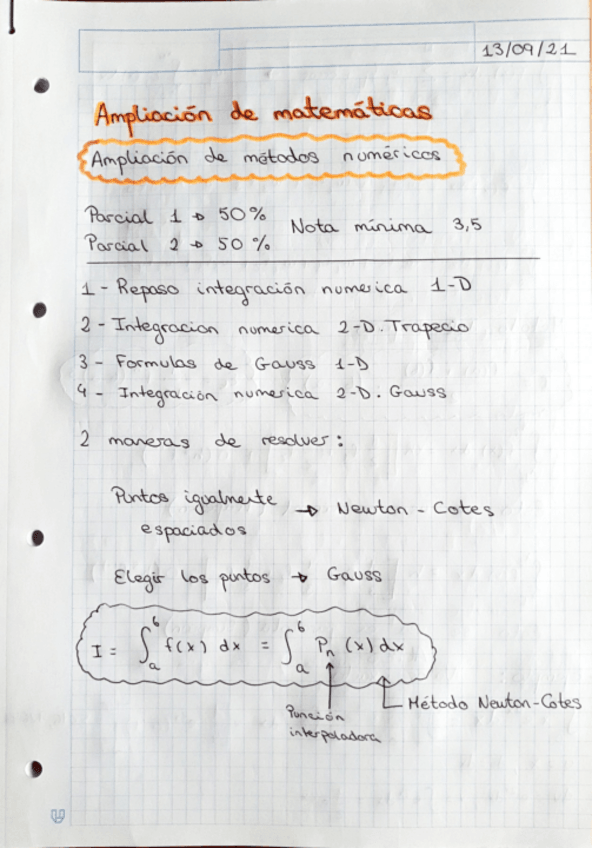 13/09/21
Ampliación de matemáticas
Ampliación de métodos numéricos
Parcial 1 → 50% Nota mínima 3,5
Parcial 2 → 50%
1 - Repaso integración numerica 1-D
2 - Integracion numerica 2-D. Trapecio
3 - Formulas de Gauss 1-D
4 - Integración numerica 2-D. Gauss
2 maneras de resolver:
Puntos igualmente → Newton - Cotes
espaciados
Elegir los puntos → Gauss
I = ∫_a^b f(x) dx = ∫_a^b P_n (x) dx
Método Newton-Cotes
Función
interpoladora